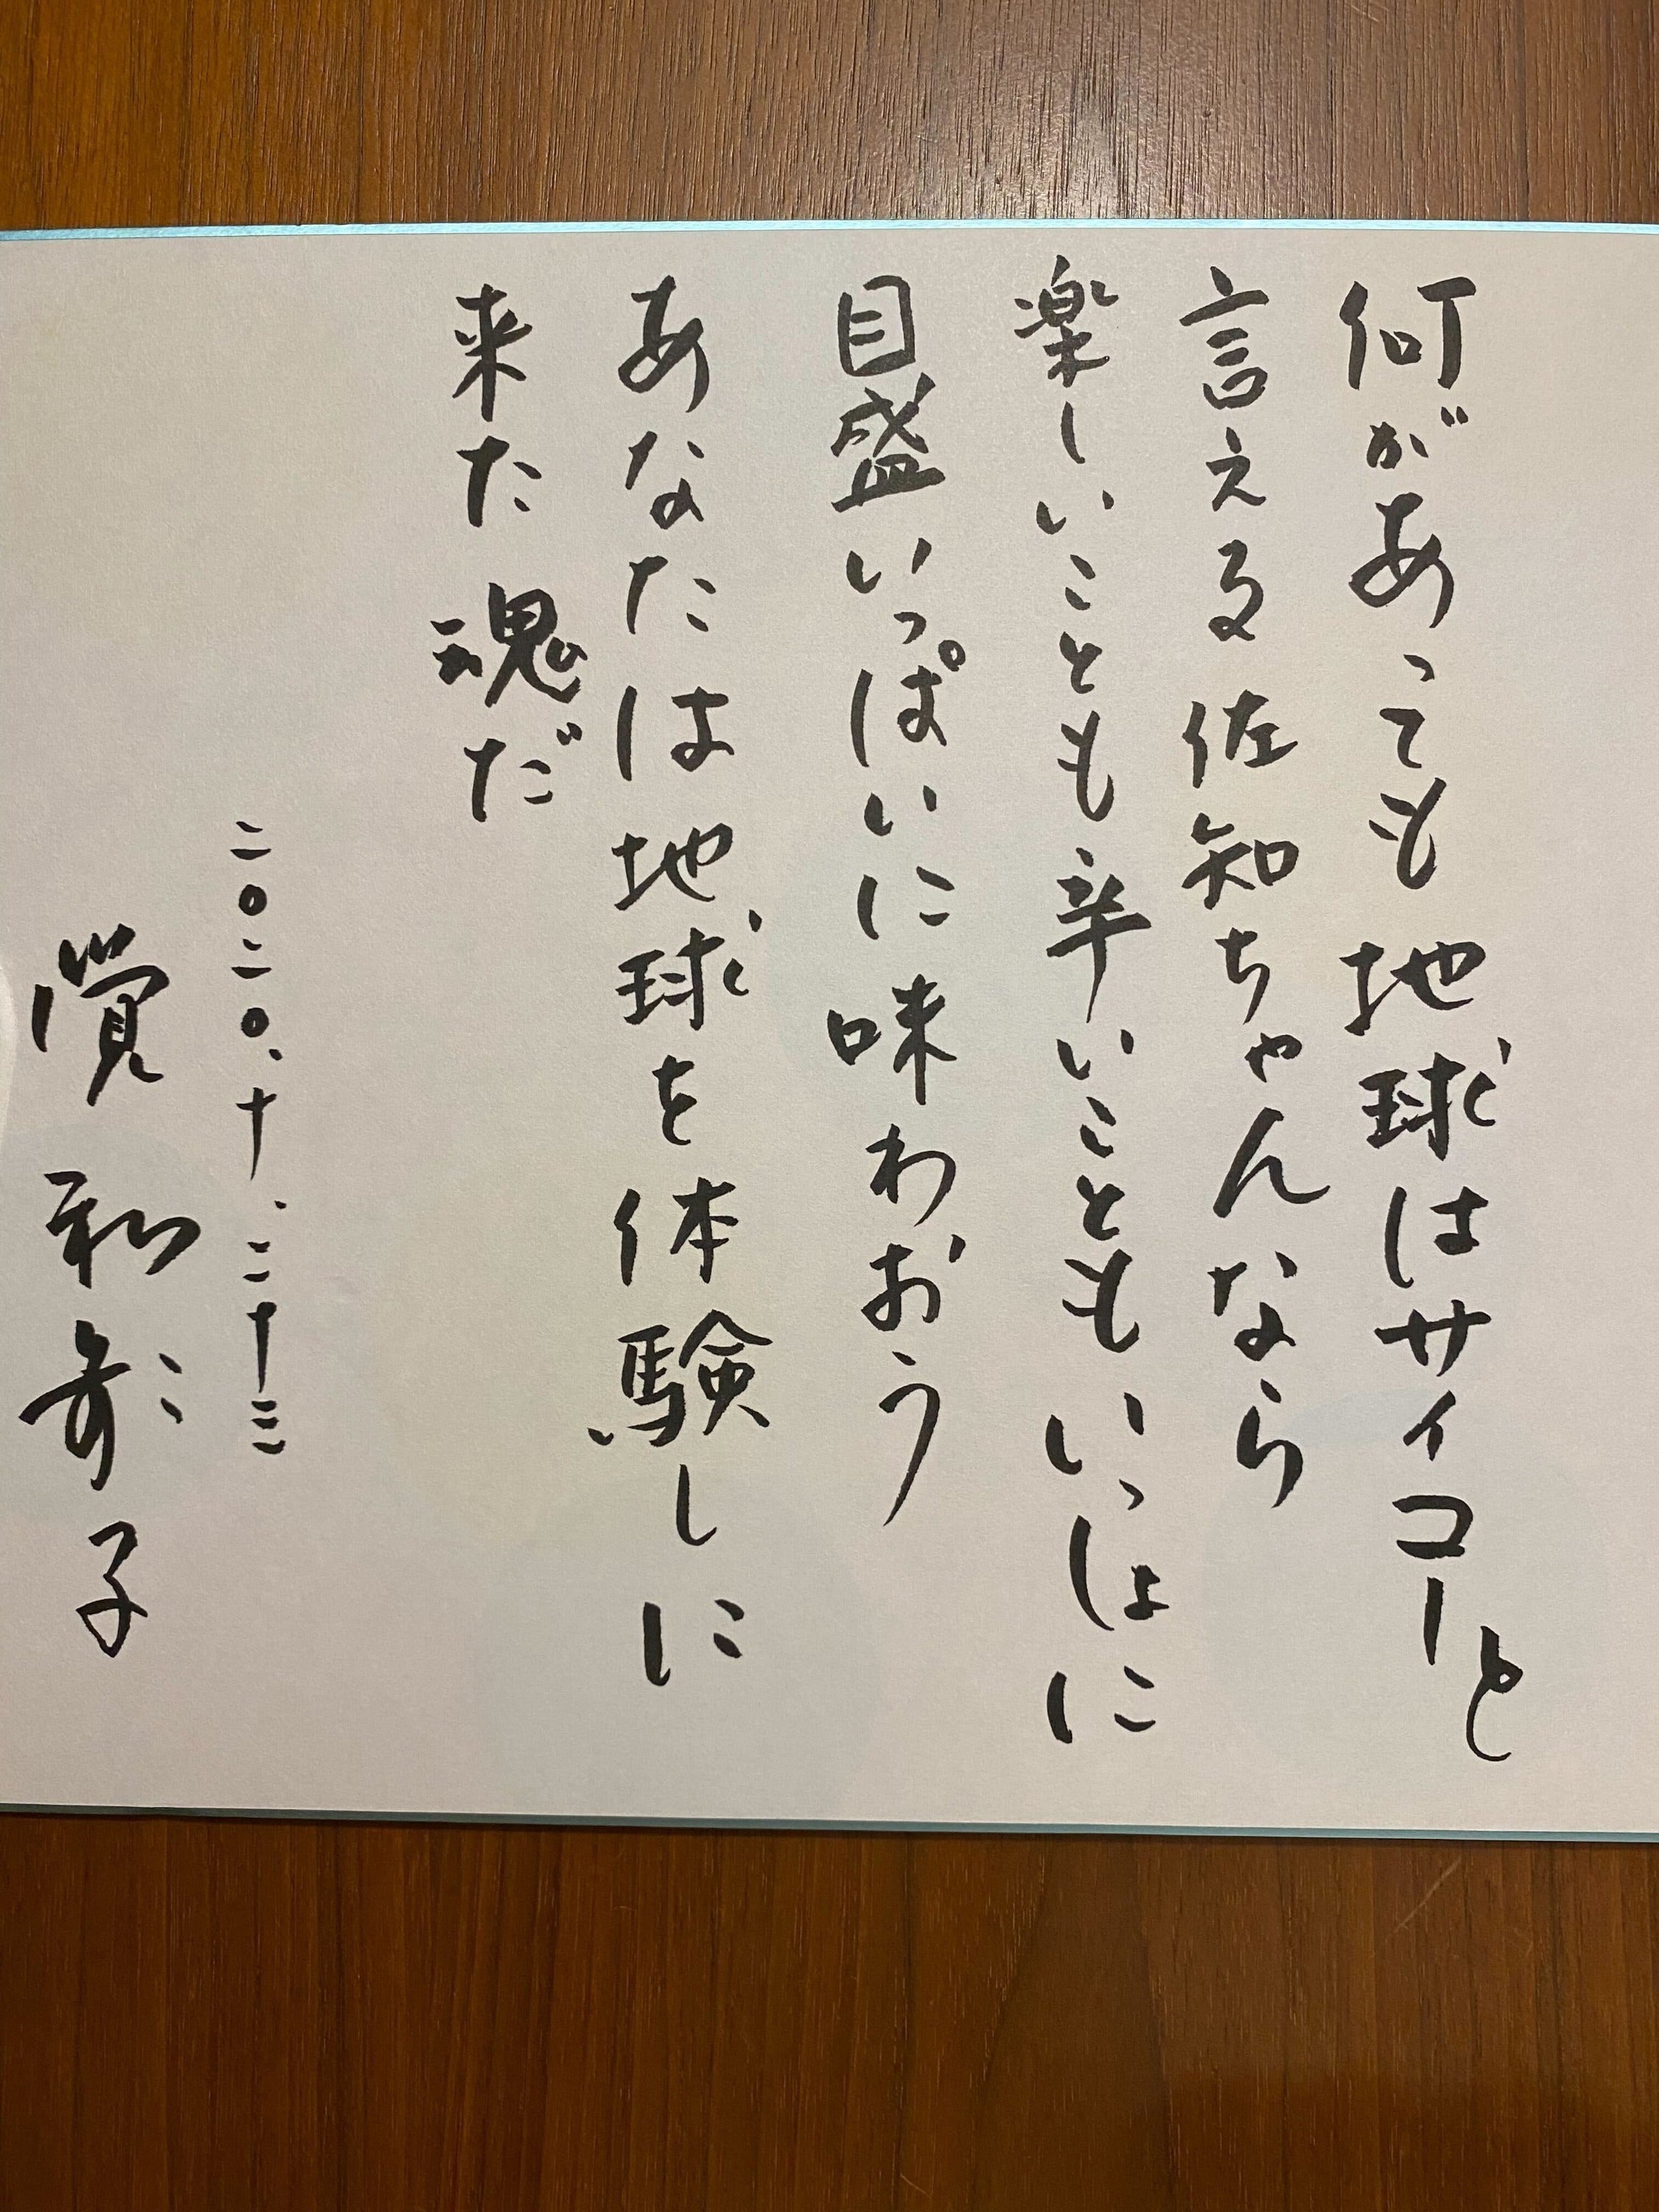 何があっても 地球はサイコーと
言える 佐知ちゃんなら
楽しいことも辛いことも いっしょに
目盛いっぱいに味わおう
あなたは地球を体験しに
来た 魂だ
二〇二〇、十、二十三
覚 和歌子